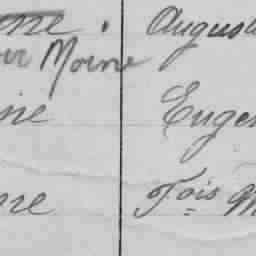 ne. Augus
oir Moine
ine Eugen
ne Fois M